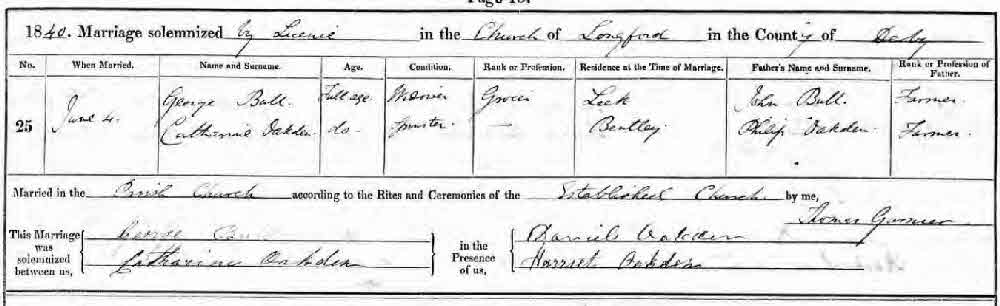 Page 13.
1840. Marriage solemnized by Licence in the Church of Longford in the County of Derby
No. When Married. Name and Surname. Age. Condition. Rank or Profession. Residence at the Time of Marriage. Father's Name and Surname. Rank or Profession of Father.
George Ball Full age Widower Grocer Leek John Ball Farmer
25 June 4. Catharine Oakden do. Spinster — Bentley Philip Oakden Farmer
Married in the Parish Church according to the Rites and Ceremonies of the Established Church by me,
Thomas
This Marriage was solemnized between us, George Ball in the Presence of us, Daniel Oakden
Catharine Oakden Harriet Oakden